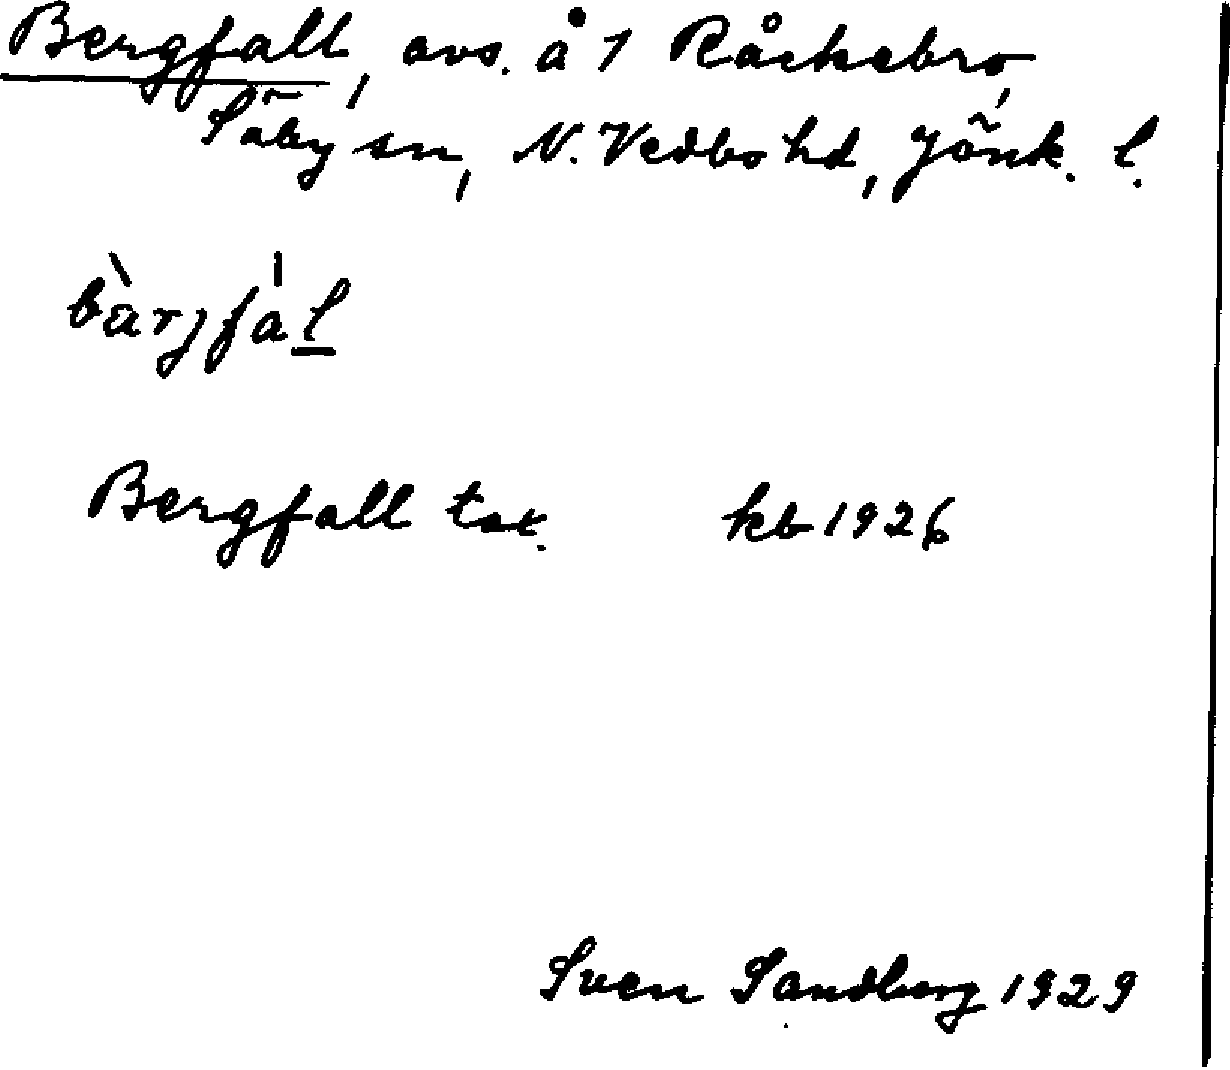 Bergfall, avs. å 1 Råckebro,
Säby sn, N. Vedbo hd, Jönk. l.
bàrjfál
Bergfall tst. kb 1926
Sven Sandberg 1929